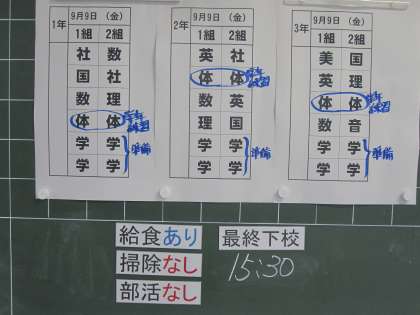 1年 9月9日 (金)
1組 2組
社 数
国 社
数 理
体 体 学年練習
学 学
学 学 準備
2年 9月9日 (金)
1組 2組
英 社
体 体 学年練習
数 英
理 国
学 学
学 学 準備
3年 9月9日 (金)
1組 2組
美 国
英 理
体 体 学年練習
数 音
学 学
学 学 準備
給食あり 最終下校
掃除なし 15:30
部活なし